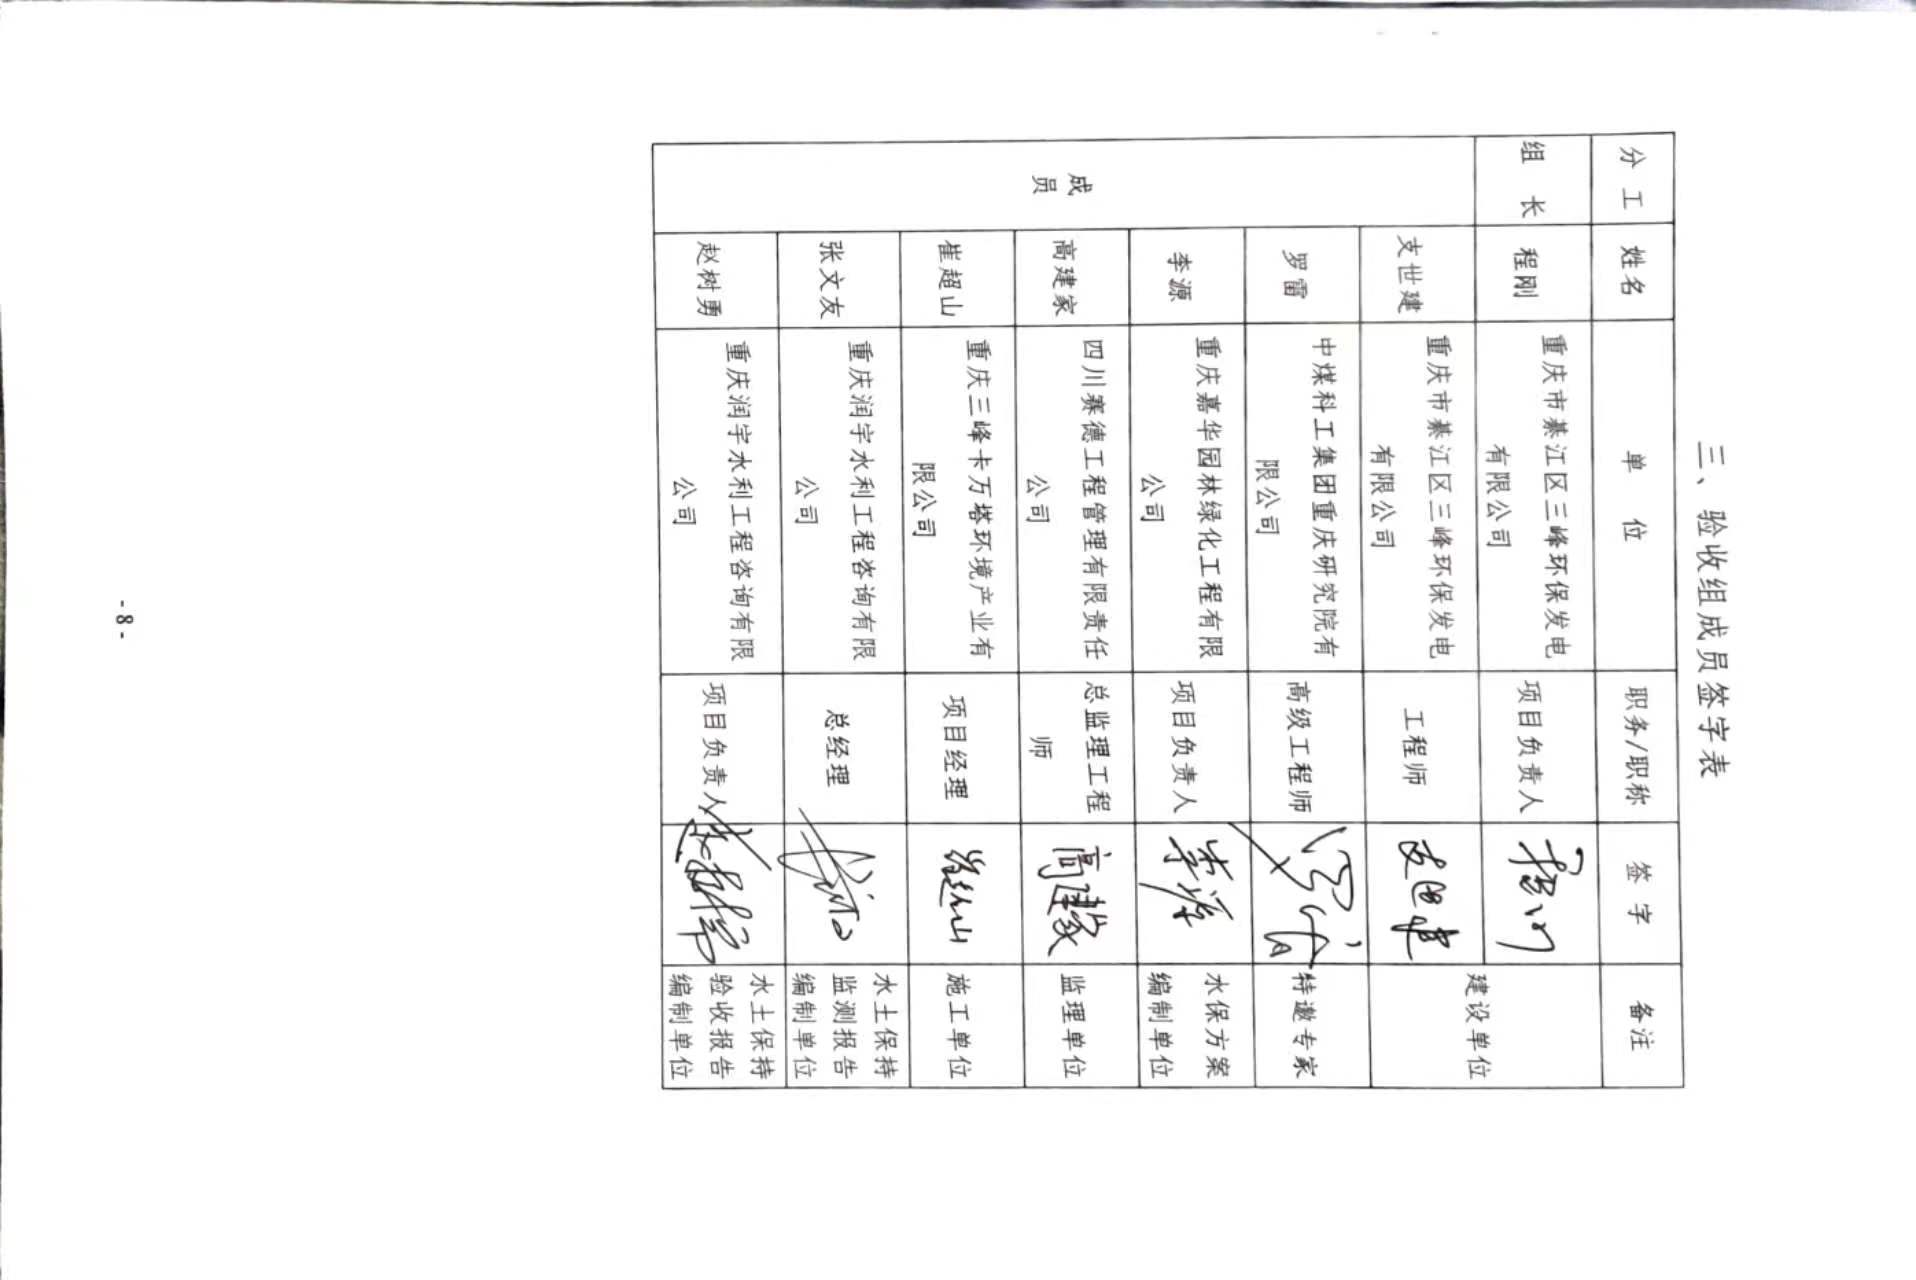 三、验收组成员签字表
分 工 姓名 单 位 职务/职称 签 字 备注
组 长 程刚 重庆市綦江区三峰环保发电
有限公司 项目负责人 建设单位
成
员
支世建 重庆市綦江区三峰环保发电
有限公司 工程师 支世建
罗雷 中煤科工集团重庆研究院有
限公司 高级工程师 特邀专家
李源 重庆嘉华园林绿化工程有限
公司 项目负责人 李源 水保方案
编制单位
高建家 四川赛德工程管理有限责任
公司 总监理工程
师 高建家 监理单位
崔超山 重庆三峰卡万塔环境产业有
限公司 项目经理 崔超山 施工单位
张文友 重庆润宇水利工程咨询有限
公司 总经理 水土保持
监测报告
编制单位
赵树勇 重庆润宇水利工程咨询有限
公司 项目负责人 赵树勇 水土保持
验收报告
编制单位
- 8 -